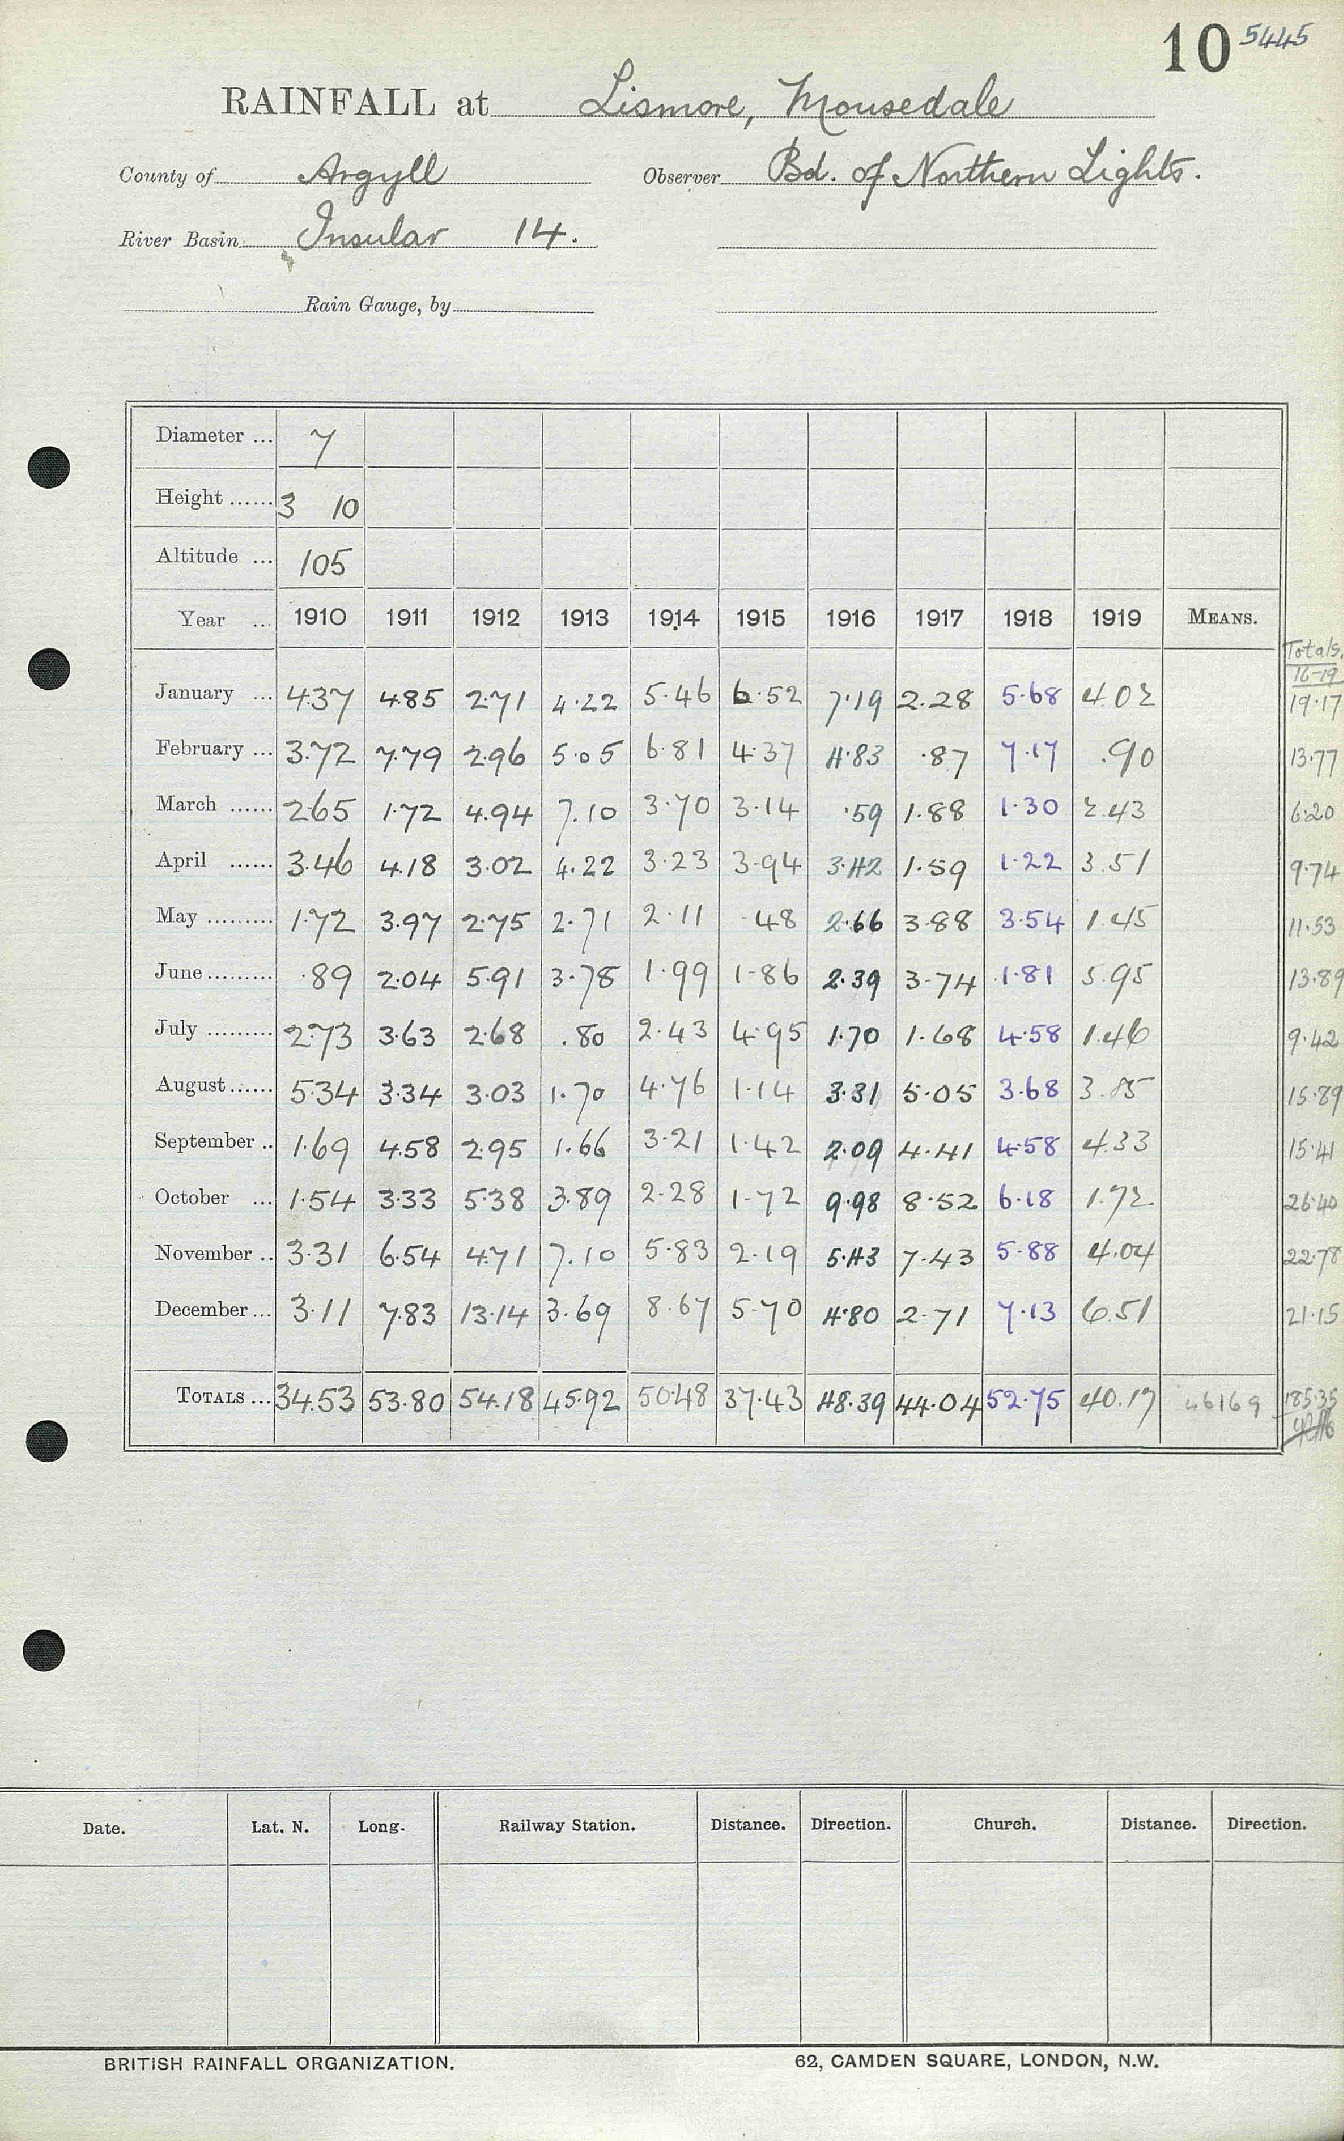 10 5445
RAINFALL at Lismore, Mousedale
County of Argyll Observer Bd. of Northern Lights.
River Basin Insular 14.
Rain Gauge, by
Diameter ... 7
Height ...... 3 10
Altitude ... 105
Year ... 1910 1911 1912 1913 1914 1915 1916 1917 1918 1919 MEANS.
Totals
16-19
January ... 4.37 4.85 2.71 4.22 5.46 6.52 7.19 2.28 5.68 4.02 19.17
February ... 3.72 7.79 2.96 5.05 6.81 4.37 4.83 .87 7.17 .90 13.77
March ...... 2.65 1.72 4.94 7.10 3.70 3.14 .59 1.88 1.30 2.43 6.20
April ...... 3.46 4.18 3.02 4.22 3.23 3.94 3.42 1.59 1.22 3.51 9.74
May ......... 1.72 3.97 2.75 2.71 2.11 .48 2.66 3.88 3.54 1.45 11.53
June ......... .89 2.04 5.91 3.78 1.99 1.86 2.39 3.74 1.81 5.95 13.89
July ......... 2.73 3.63 2.68 .80 2.43 4.95 1.70 1.68 4.58 1.46 9.42
August ...... 5.34 3.34 3.03 1.70 4.76 1.14 3.31 5.05 3.68 3.85 15.89
September .. 1.69 4.58 2.95 1.66 3.21 1.42 2.09 4.41 4.58 4.33 15.41
October ... 1.54 3.33 5.38 3.89 2.28 1.72 9.98 8.52 6.18 1.72 26.40
November .. 3.31 6.54 4.71 7.10 5.83 2.19 5.43 7.43 5.88 4.04 22.78
December ... 3.11 7.83 13.14 3.69 8.67 5.70 4.80 2.71 7.13 6.51 21.15
TOTALS ... 34.53 53.80 54.18 45.92 50.48 37.43 48.39 44.04 52.75 40.17 46169 185.35
Date. Lat. N. Long. Railway Station. Distance. Direction. Church. Distance. Direction.
BRITISH RAINFALL ORGANIZATION. 62, CAMDEN SQUARE, LONDON, N.W.